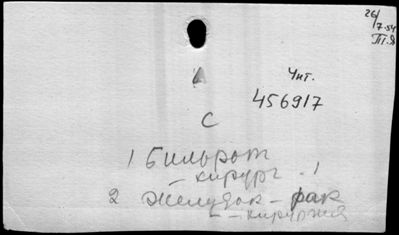 26/
7.54
Чит.
456917
С
1 Бильрот
– хирург . 1
2 Желудок – рак
– хирургия